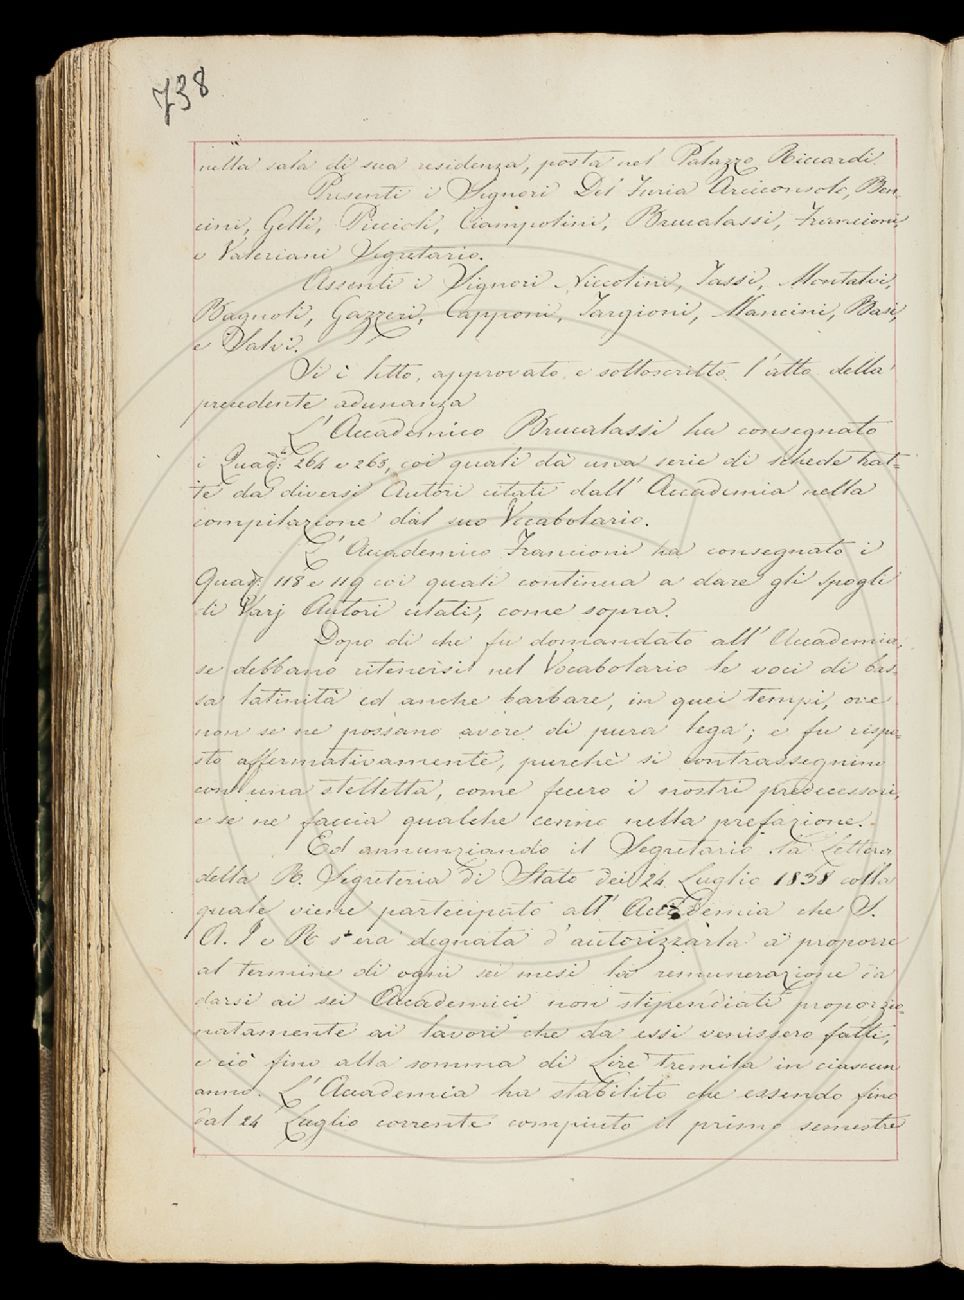 738
nella sala di sua residenza, posta nel Palazzo Riccardi.
Presenti i Signori Del Furia Arciconsolo, Ben-
cini, Gelli, Piccioli, Ciampolini, Brucalassi, Francioni,
e Valeriani Segretario.
Assenti i Signori Niccolini, Tassi, Montalvi,
Bagnoli, Gazzeri, Capponi, Targioni, Mancini, Basi,
e Salvi.
Si è letto, approvato, e sottoscritto l'atto della
precedente adunanza
L'Accademico Brucalassi ha consegnato
i Quad: 264 e 265, coi quali dà una serie di schede trat-
te da diversi Autori citati dall'Accademia nella
compilazione dal suo Vocabolario.
L'Accademico Francioni ha consegnato i
Quad: 118 e 119 coi quali continua a dare gli spogli
di Varj Autori citati, come sopra.
Dopo di che fu domandato all'Accademia,
se debbano ritenersi nel Vocabolario le voci di bas-
sa latinità ed anche barbare, in quei tempi, ove
non se ne possano avere di pura lega; e fu rispo-
sto affermativamente, purchè si contrassegnino
con una stelletta, come fecero i nostri predecessori,
e se ne faccia qualche cenno nella prefazione.
Ed annunziando il Segretario la Lettera
della R. Segreteria di Stato dei 24 Luglio 1838 colla
quale viene partecipato all'Accademia che S.
A. I e R s'era degnata d'autorizzarla a proporre
al termine di ogni sei mesi la remunerazione da
darsi ai sei Accademici non stipendiati proporzio-
natamente ai lavori che da essi venissero fatti,
e ciò fino alla somma di Lire tremila in ciascun
anno. L'Accademia ha stabilito che essendo fino
dal 24 Luglio corrente compiuto il primo semestre